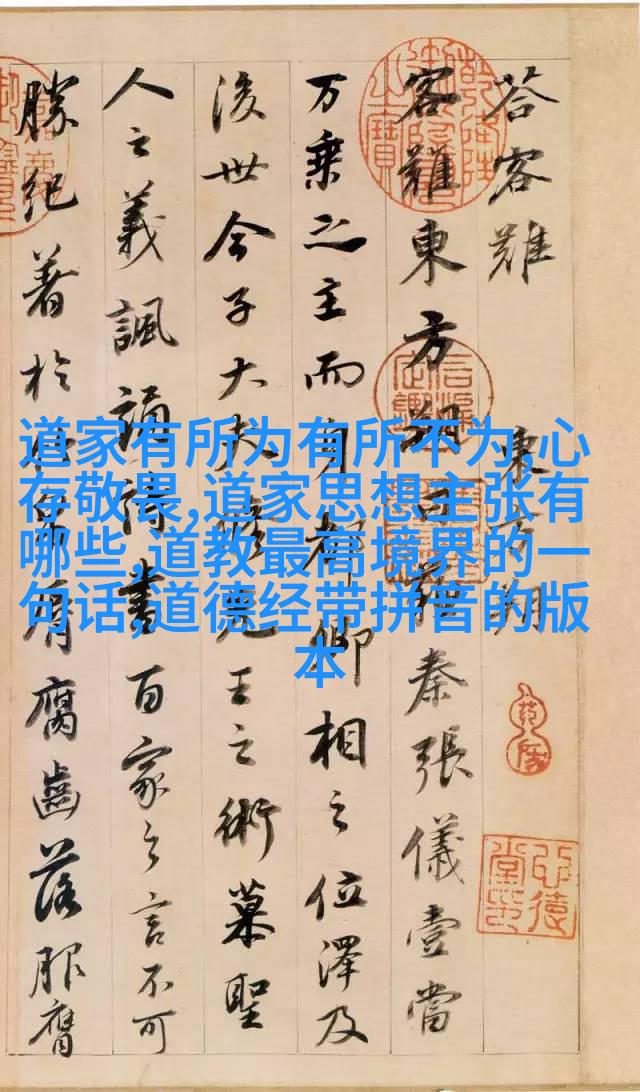 荅客難 東方朔
客難東方朔曰蘇秦張儀壹當
万乗之主而身都卿相之位澤及
後世今子大夫脩先王之術慕聖
人之義諷誦詩書百家之言不可
勝紀著於竹帛脣腐齒落服膺
道家有所为有所不为,心
存敬畏,道家思想主张有
哪些,道教最高境界的一
句话,道德经带拼音的版
本